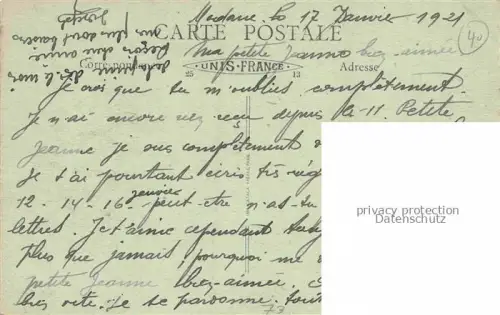 Modane le 17 Janvier 1921
CARTE POSTALE
Ma petite Jeanne bien-aimée
Correspondance
Adresse
25 UNIS-FRANCE 13
40
Je crois que tu m'oublies complètement.
Je n'ai encore rien reçu depuis le 11. Petite
Jeanne je suis complètement
Je t'ai pourtant écris très
12 - 14 - 16 - janvier peut-être n'as-tu
lettres. Je t'aime cependant
plus que jamais, pourquoi me
petite Jeanne bien-aimée.
bien vite. Je te pardonne.
Reçois d'un
Joseph
73
privacy protection
Datenschutz